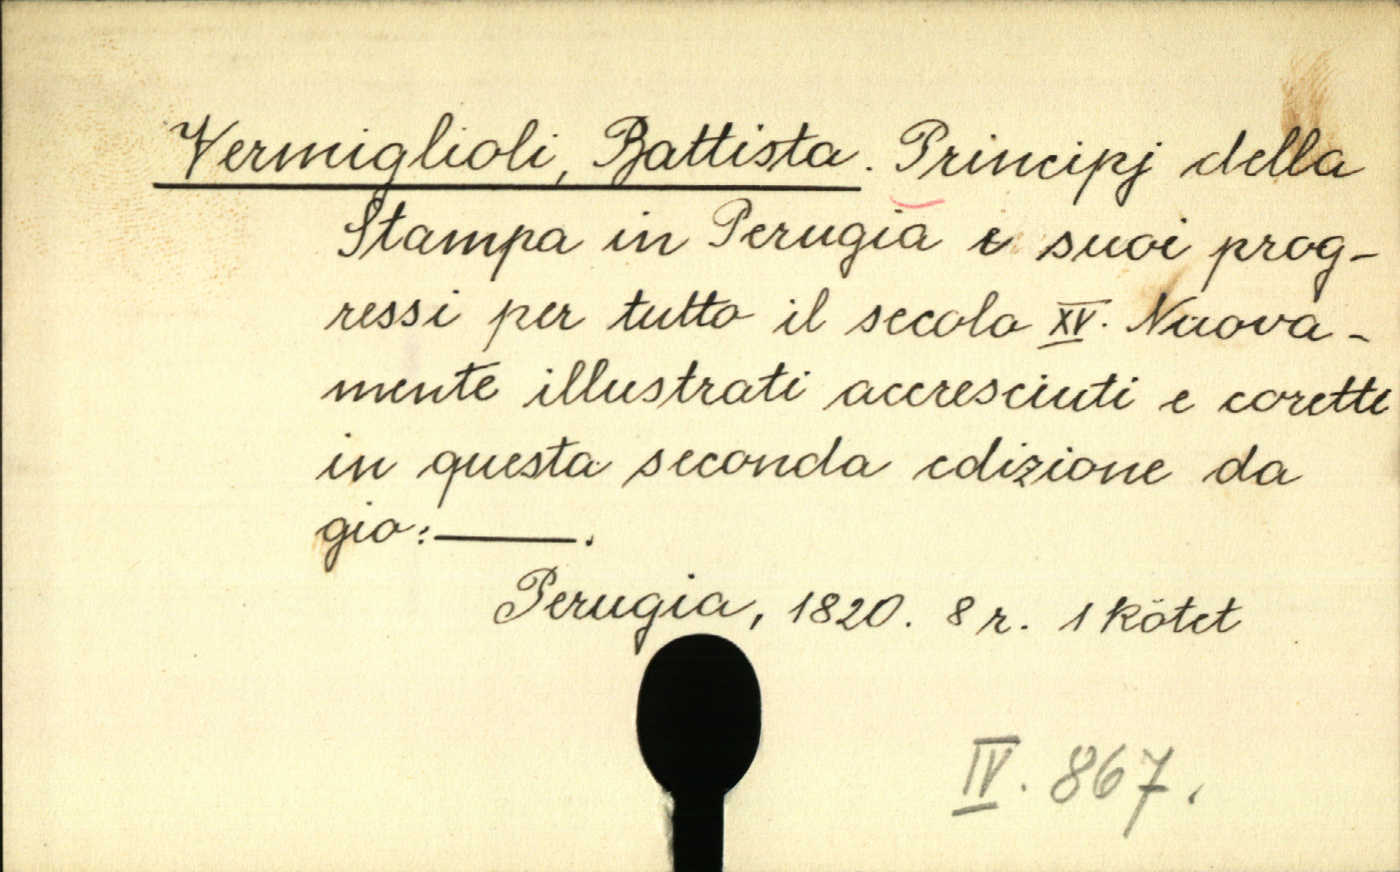 Vermiglioli, Battista. Principj della
Stampa in Perugia e suoi prog-
ressi per tutto il secolo XV. Nuova-
mente illustrati accresciuti e coretti
in questa seconda edizione da
gio: ———.
Perugia, 1820. 8 r. 1 kötet
IV. 867.